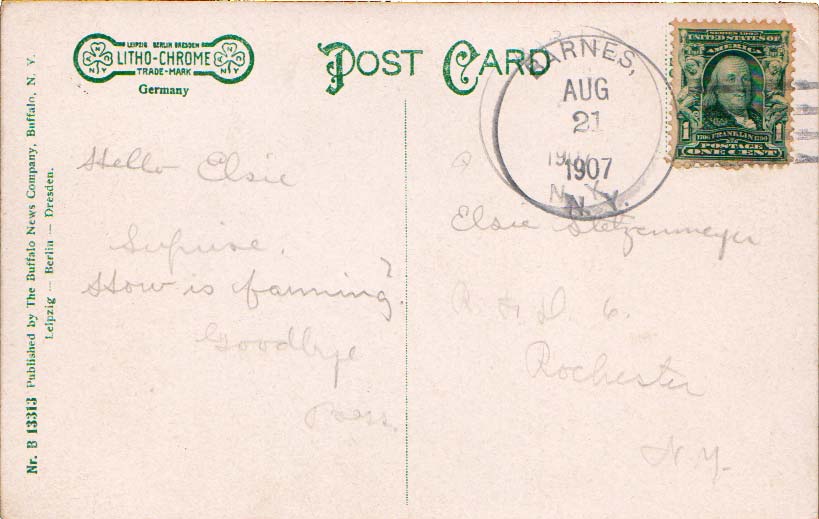 LEIPZIG BERLIN DRESDEN
LITHO-CHROME
TRADE-MARK
N K N Y
N K N Y
Germany
POST CARD
BARNES,
AUG
21
1907
N. Y.
SERIES 1902
UNITED STATES OF
AMERICA
1
1
1706 FRANKLIN 1790
POSTAGE
ONE CENT
Nr. B 13313 Published by The Buffalo News Company, Buffalo, N. Y.
Leipzig — Berlin — Dresden.
Hello Elsie
Suprise.
How is farming?
Goodbye
Elsie
R. F. D. 6.
Rochester
N. Y.